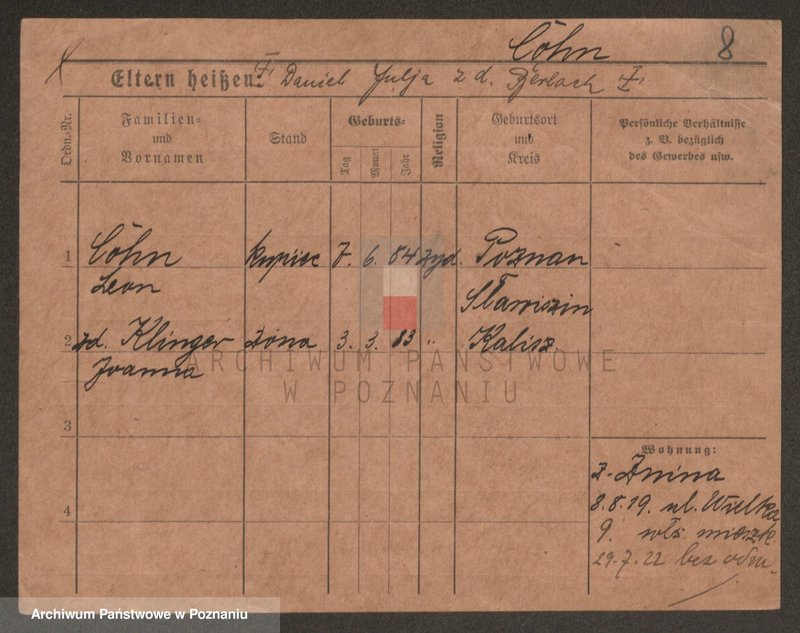 Cöhn 8
Eltern heißen: Daniel Julja z d. Gerlach
Ordn.-Nr.
Familien- und Vornamen
Stand
Geburts-
Tag
Monat
Jahr
Religion
Geburtsort und Kreis
Persönliche Verhältnisse z. B. bezüglich des Gewerbes usw.
1 Cöhn kupiec 7. 6. 84 żyd. Poznan
Leon
Sławiszin
2 zd. Klinger żona 3. 3. 83 " Kalisz
Joanna
ARCHIWUM PAŃSTWOWE
W POZNANIU
3
Wohnung:
z Żnina
4
8.8.19 ul. Wielka
9. wł. mieszk.
29.7.22 bez odm.
Archiwum Państwowe w Poznaniu